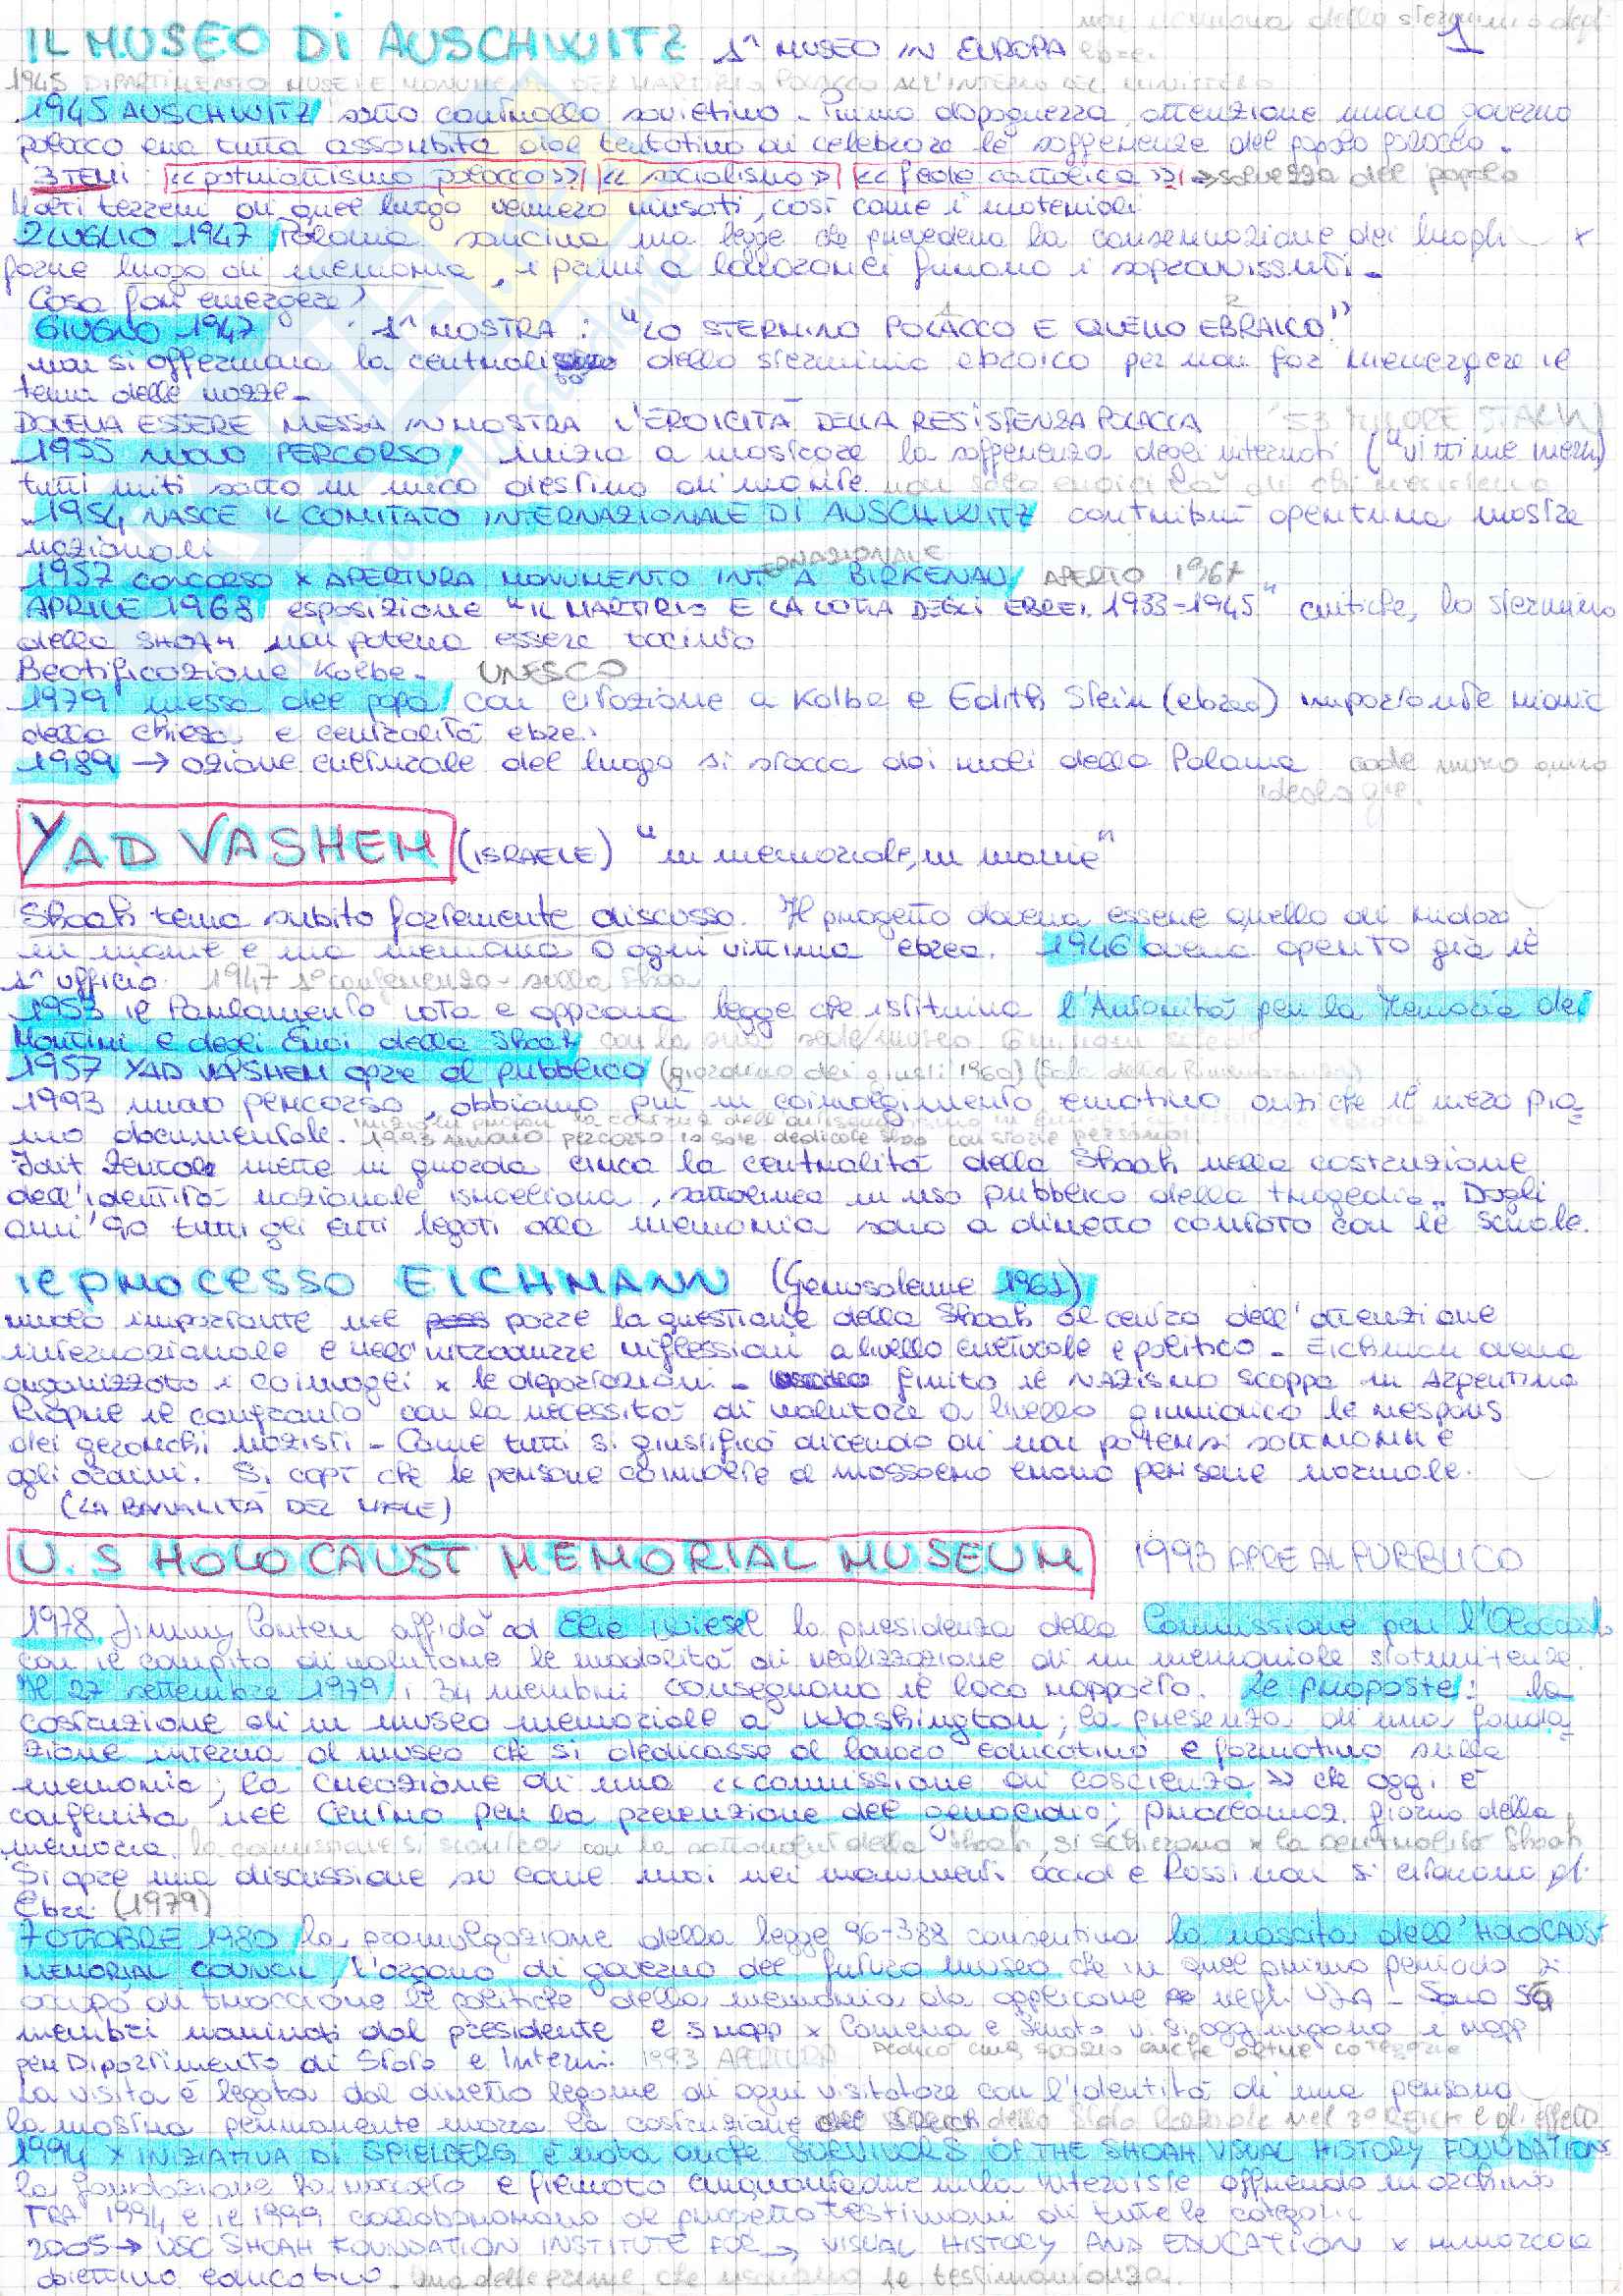 non nominava dello sterminio degli
IL MUSEO DI AUSCHWITZ 1° MUSEO IN EUROPA ebrei. 1
1945 DIPARTIMENTO MUSEI E MONUMENTI DEL MARTIRIO POLACCO ALL'INTERNO DEL MINISTERO
1945 AUSCHWITZ sotto controllo sovietico. Primo dopoguerra attenzione nuovo governo
polacco era tutta assorbita dal tentativo di celebrare le sofferenze del popolo polacco.
3 TEMI: «patriottismo polacco» «socialismo» «fede cattolica» → salvezza del popolo
Molti terreni di quel luogo vennero riusati, così come i materiali
2 LUGLIO 1947 Polonia sancirà una legge che prevedeva la conservazione dei luoghi x
farne luogo di memoria, i primi a lavorarci furono i sopravvissuti.
Cosa far emergere?
GIUGNO 1947 1ª MOSTRA: "LO STERMINIO POLACCO E QUELLO EBRAICO"
non si affermava la centralità dello sterminio ebraico per non far riemergere il
tema delle razze.
DOVEVA ESSERE MESSA IN MOSTRA L'EROICITÀ DELLA RESISTENZA POLACCA '53 MUORE STALIN
1955 nuovo PERCORSO, inizia a mostrare la sofferenza degli internati ("vittime inermi)
tutti uniti sotto un unico destino di morte. non solo eroicità di chi resisteva
1954 NASCE IL COMITATO INTERNAZIONALE DI AUSCHWITZ contribuì apertura mostre
nazionali
1957 CONCORSO x APERTURA MONUMENTO INTERNAZIONALE A BIRKENAU, APERTO 1967
APRILE 1968 esposizione "IL MARTIRIO E LA LOTTA DEGLI EBREI. 1933-1945" critiche, lo sterminio
della SHOAH non poteva essere taciuto
Beatificazione Kolbe. UNESCO
1979 messa del papa con citazione a Kolbe e Edith Stein (ebrea) importante
della chiesa e centralità ebrei.
1989 → azione culturale del luogo si stacca dai moti della Polonia cade muro
ideologie.
YAD VASHEM (ISRAELE) "un memoriale, un nome"
Shoah tema subito fortemente discusso. Il progetto doveva essere quello di ridare
un nome e una memoria a ogni vittima ebrea. 1946 aveva aperto già il
1° ufficio 1947 1ª conferenza sulla Shoa
1953 il Parlamento vota e approva legge che istituiva l'Autorità per la Memoria dei
Martiri e degli Eroi della Shoah con la sua sede/museo
1957 YAD VASHEM apre al pubblico (giardino dei giusti 1960) (Sala della Rimembranza)
1993 nuovo percorso, abbiamo più un coinvolgimento emotivo anziché il mero pia=
no documentale. 1993 nuovo percorso 10 sale dedicate Shoa con storie personali
Idit Zertal mette in guardia circa la centralità della Shoah nella costruzione
dell'identità nazionale israeliana, sottolinea un uso pubblico della tragedia. Dagli
anni '90 tutti gli enti legati alla memoria sono a diretto contatto con le scuole.
il processo EICHMANN (Gerusalemme 1961)
ruolo importante nel porre la questione della Shoah al centro dell'attenzione
internazionale e nell'introdurre riflessioni a livello culturale e politico. Eichman aveva
organizzato i convogli x le deportazioni. finito il nazismo scappa in Argentina
Riapre il confronto con la necessità di valutare a livello giuridico le respons
dei gerarchi nazisti. Come tutti si giustificò dicendo di non potersi sottrarre
agli ordini. Si capì che le persone coinvolte al massacro erano persone normale.
(LA BANALITÀ DEL MALE)
U.S HOLOCAUST MEMORIAL MUSEUM 1993 APRE AL PUBBLICO
1978 Jimmy Carter affidò ad Elie Wiesel la presidenza della Commissione per l'Olocausto
con il compito di valutare le modalità di realizzazione di un memoriale statunitense.
Il 27 settembre 1979 i 34 membri consegnano il loro rapporto. Le proposte: la
costruzione di un museo memoriale a Washington; la presenza di una fonda=
zione interna al museo che si dedicasse al lavoro educativo e formativo sulla
memoria; la creazione di una «commissione di coscienza» che oggi è
confluita nel Centro per la prevenzione del genocidio; proclamaz. giorno della
memoria. la commissione si scontra con la della Shoah, si schierano x la centralità Shoah
Si apre una discussione su come mai nei monumenti occid e Russi non si citavano gli
Ebrei (1979)
7 OTTOBRE 1980 la promulgazione della legge 96-388 consentiva la nascita dell'HOLOCAUST
MEMORIAL COUNCIL, l'organo di governo del futuro museo che in quel primo periodo si
occupò di tracciare le politiche della memoria da applicare negli USA. Sono 56
membri nominati dal presidente e 5 rapp x Camera e Senato vi si aggiungono 1 rapp
per Dipartimento di Stato e Interni. 1993 APERTURA Dedicò uno spazio anche altre categorie
La visita è legata dal diretto legame di ogni visitatore con l'identità di una persona
la mostra permanente narra la costruzione dello Stato razziale nel 3° REICH e gli effetti
1994 x INIZIATIVA DI SPIELBERG è nata anche SURVIVORS OF THE SHOAH VISUAL HISTORY FOUNDATION
la fondazione ha raccolto e filmato cinquantadue mila interviste offrendo un archivio
TRA 1994 e il 1999 collaborarono al progetto testimoni di tutte le categorie
2005 → USC SHOAH FOUNDATION INSTITUTE FOR → VISUAL HISTORY AND EDUCATION x rimarcare
obiettivo educativo. una delle prime che usavano le testimonianza.